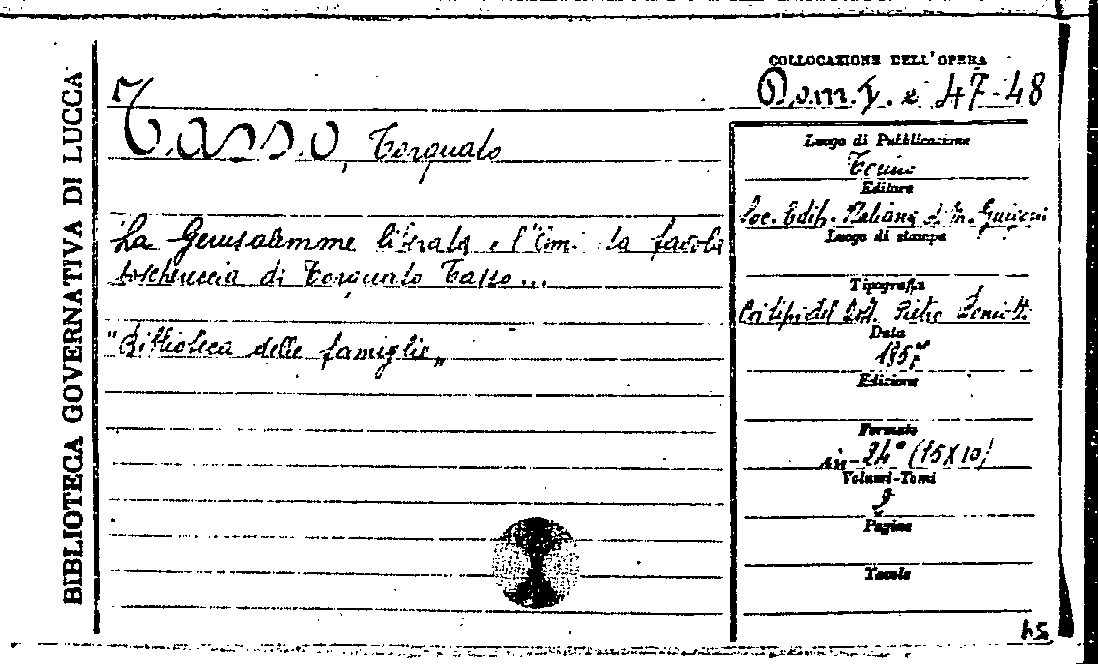 BIBLIOTECA GOVERNATIVA DI LUCCA
COLLOCAZIONE DELL'OPERA
47-48
Tasso, Torquato
La Gerusalemme liberata e la favola
boschereccia di Torquato Tasso...
"Biblioteca delle famiglie„
Luogo di Pubblicazione
Torino
Editore
Soc. Edit. Italiana di M. Guigoni
Luogo di stampa
Tipografia
Coi tipi del Dott. Pietro
Data
Edizione
Formato
in-24° (15x10)
Volumi-Tomi
2
Pagine
Tavole